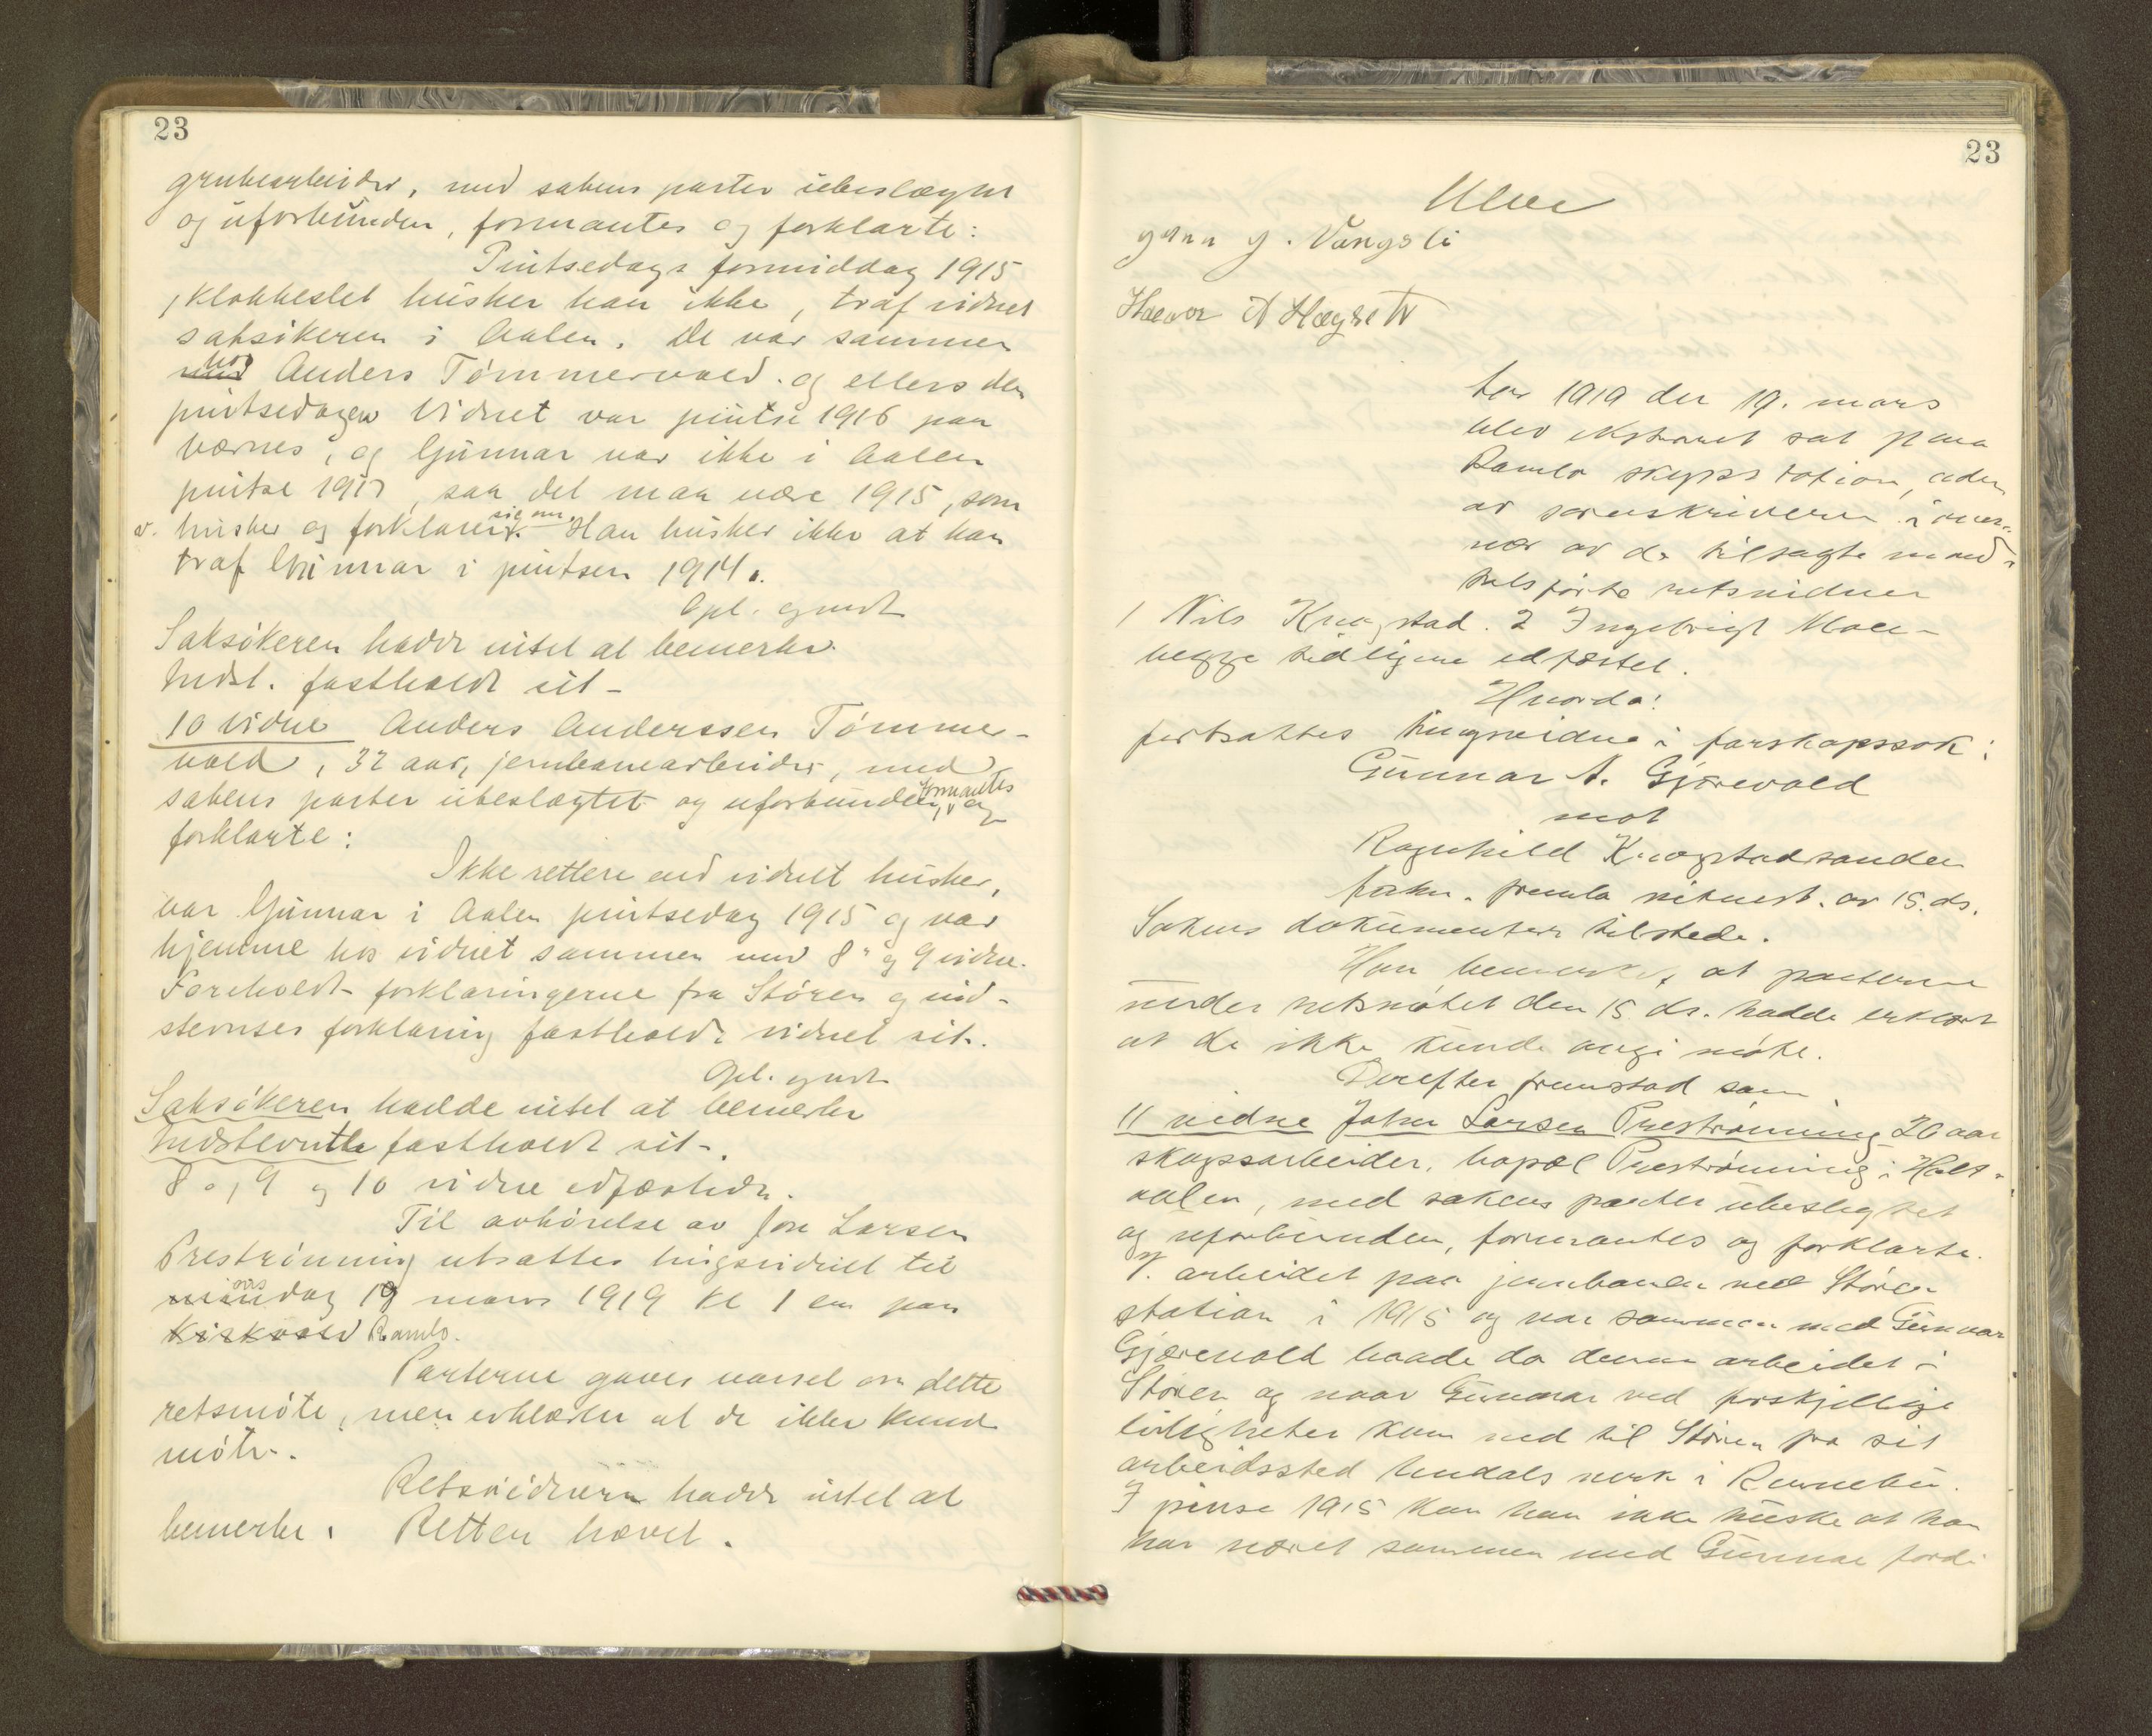 23
grubearbeider, med sakens parter ubeslægtet
og uforbunden, formantes og forklarte:
Pintsedags formiddag 1915
, klokkeslet husker han ikke, traf vidnet
saksøkeren i Aalen. De var sammen
hos
med Anders Tømmervold. og ellers den
pintsedagen Vidnet var pintse 1916 paa
Værnes, og Gunnar var ikke i Aalen
pintse 1917, saa det maa være 1915, som
v. husker og forklarer sig om. Han husker ikke at han
traf Gunnar i pintsen 1914.
Opl. vedt.
Saksøkeren hadde intet at bemerke.
Indst. fastholdt sit-
10 vidne Anders Anderssen Tømmer-
vold, 32 aar, jernbanearbeider, med
sakens parter ubeslægtet og uforbunden, formantes og
forklarte:
Ikke rettere end vidnet husker,
var Gunnar i Aalen pintsedag 1915 og var
hjemme hos vidnet sammen med 8 og 9 vidne.
Foreholdt forklaringerne fra Støren og ind-
stevntes forklaring fastholdt vidnet sit.
Opl. vedt.
Saksøkeren hadde intet at bemerke
Indstevnte fastholdt sit-.
8, 9 og 10 vidne edfæstedes.
Til avhørelse av Jon Larsen
Prestrønning utsattes tingsvidnet til
ons
mandag 19 mars 1919 kl 1 em paa
Kirkvold Ramlo.
Parterne gaves varsel om dette
retsmøte, men erklærte at de ikke kunde
møte.
Retsvidnerne hadde intet at
bemerke. Retten hævet.
23
G. Vangsli
A Hægset
Aar 1919 den 19. mars
blev ekstraret sat paa
Ramlo skysstation, adm
av sorenskriveren i overvær
av de tilsagte mand-
talsførte retsvidner
1 Nils Krogstad. 2 Ingebrigt Moen-
begge tidligere edfæstet.
Hvorda:
fortsattes tingsvidne i farskapssak:
Gunnar N. Gjærevold
mot
Ragnhild Krogstadsanden
forkn. fremla av 15. ds.
Sakens dokumenter tilstede.
Han bemerket, at parterne
under retsmøtet den 15 ds. hadde erklært
at de ikke kunde møte.
Derefter fremstod som
11 vidne John Larsen Prestrønning 20 aar
skogsarbeider, bopæl Prestrønning i Holt-
aalen, med sakens parter ubeslegtet
og uforbunden, formantes og forklarte.
V. arbeidet paa jernbanen ved Støren
station i 1915 og var sammen med Gunnar
Gjærevold baade da denne arbeidet i
Støren og naar Gunnar ved forskjellige
leiligheter kom ned til Støren fra sit
arbeidssted Undals verk i Rennebu.
I pinse 1915 kan han ikke huske at han
har været sammen med Gunnar fordi